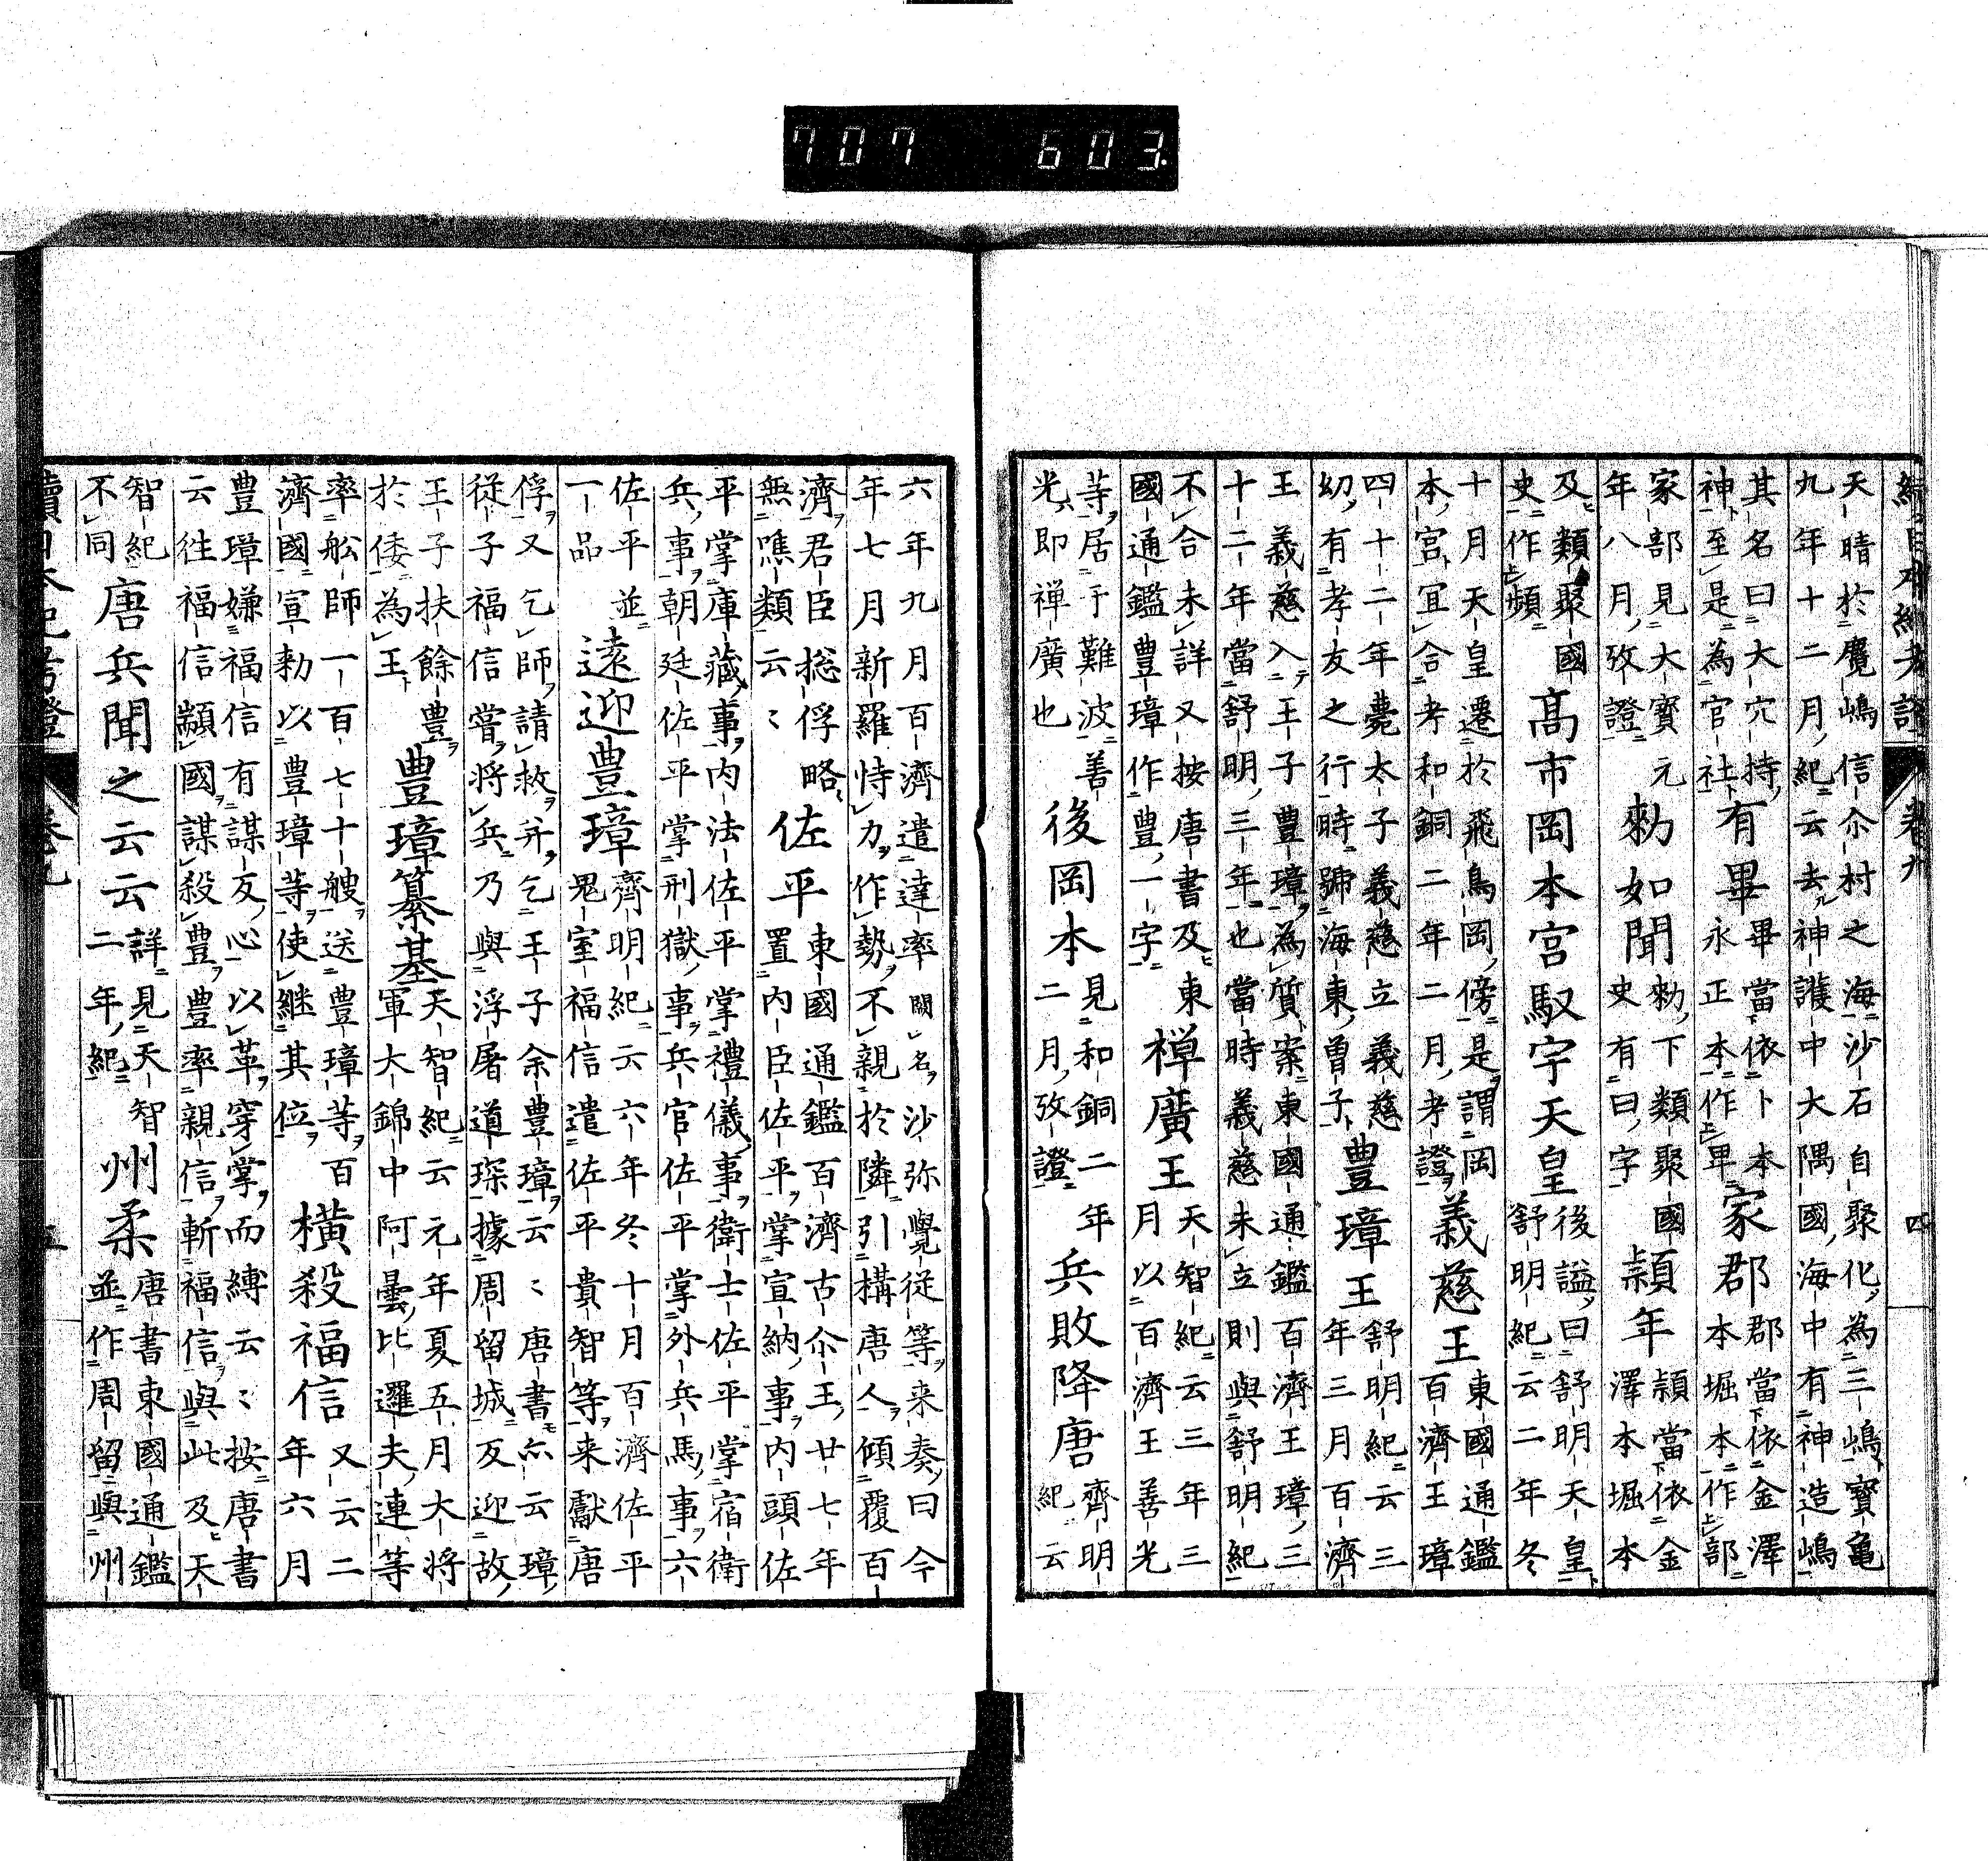 續日本紀考證 卷九 四
天晴於麑嶋信尒村之海沙石自聚化為三嶋寶龜
九年十二月紀云去神護中大隅國海中有神造嶋
其名曰大穴持
神至是為官社
有畢
畢當依卜本
永正本作卑
家郡
郡當依金澤
本堀本作部
家部見大寶元
年八月攷證
勅如聞
勅下類聚國
史有曰字
頴年
頴當依金
澤本堀本
及類聚國
史作頻
高市岡本宮馭宇天皇
後謚曰舒明天皇
舒明紀云二年冬
十月天皇遷於飛鳥岡傍是謂岡
本宮宜合考和銅二年二月考證
義慈王
東國通鑑
百濟王璋
四十二年薨太子義慈立義慈
幼有孝友之行時號海東曽子
豊璋王
舒明紀云三
年三月百濟
王義慈入王子豊璋為質案東國通鑑百濟王璋三
十二年當舒明三年也當時義慈未立則與舒明紀
不合未詳又按唐書及東
國通鑑豊璋作豊一字
禅廣王
天智紀云三年三
月以百濟王善光
等居于難波善
光即禅廣也
後岡本
見和銅二年
二月攷證
兵敗降唐
齊明
紀云
六年九月百濟遣達率闕名沙弥覺從等来奏曰今
年七月新羅恃力作勢不親於隣引構唐人傾覆百
濟君臣捴俘略
無噍類云〻
佐平
東國通鑑百濟古尒王廿七年
置内臣佐平掌宣納事内頭佐
平掌庫藏事内法佐平掌禮儀事衛士佐平掌宿衛
兵事朝廷佐平掌刑獄事兵官佐平掌外兵馬事六
佐平並
一品
遠迎豊璋
齊明紀云六年冬十月百濟佐平
鬼室福信遣佐平貴智等来獻唐
俘又乞師請救并乞王子余豊璋云〻唐書亦云璋
從子福信嘗將兵乃與浮屠道琛據周留城反迎故
王子扶餘豊
於倭為王
豊璋纂基
天智紀云元年夏五月大将
軍大錦中阿曇比邏夫連等
率舩師一百七十艘送豊璋等百
濟國宣勅以豊璋等使継其位
橫殺福信
又云二
年六月
豊璋嫌福信有謀反心以革穿掌而縛云〻按唐書
云徃福信顓國謀殺豊豊率親信斬福信與此及天
智紀
不同
唐兵聞之云云
詳見天智
二年紀
州柔
唐書東國通鑑
並作周留與州
續日本紀考證 卷九 五
707 603.